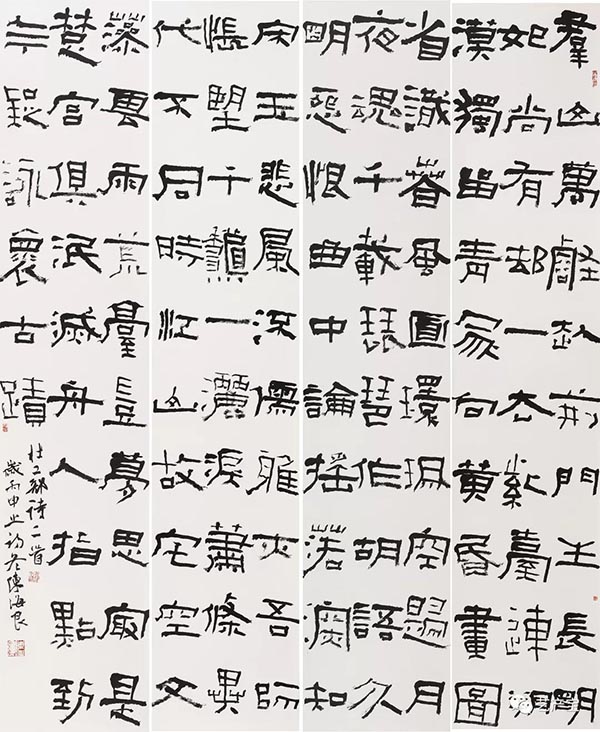 羣山萬壑赴荆門生長明
妃尚有邨一去紫臺連朔
漠獨留青冢向黃昏畫圖
省識萅風面環珮空歸月
夜魂千載琵琶作胡語分
明怨恨曲中論搖落深知
宋玉悲風深儒雅亦吾師
悵望千龝一灑淚蕭條異
代不同時江山故宅空文
藻雲雨荒臺豈夢思最是
楚宮俱泯滅舟人指點到
今疑詠褱古蹟
杜工部詩二首
歲丙申之初冬陳海良